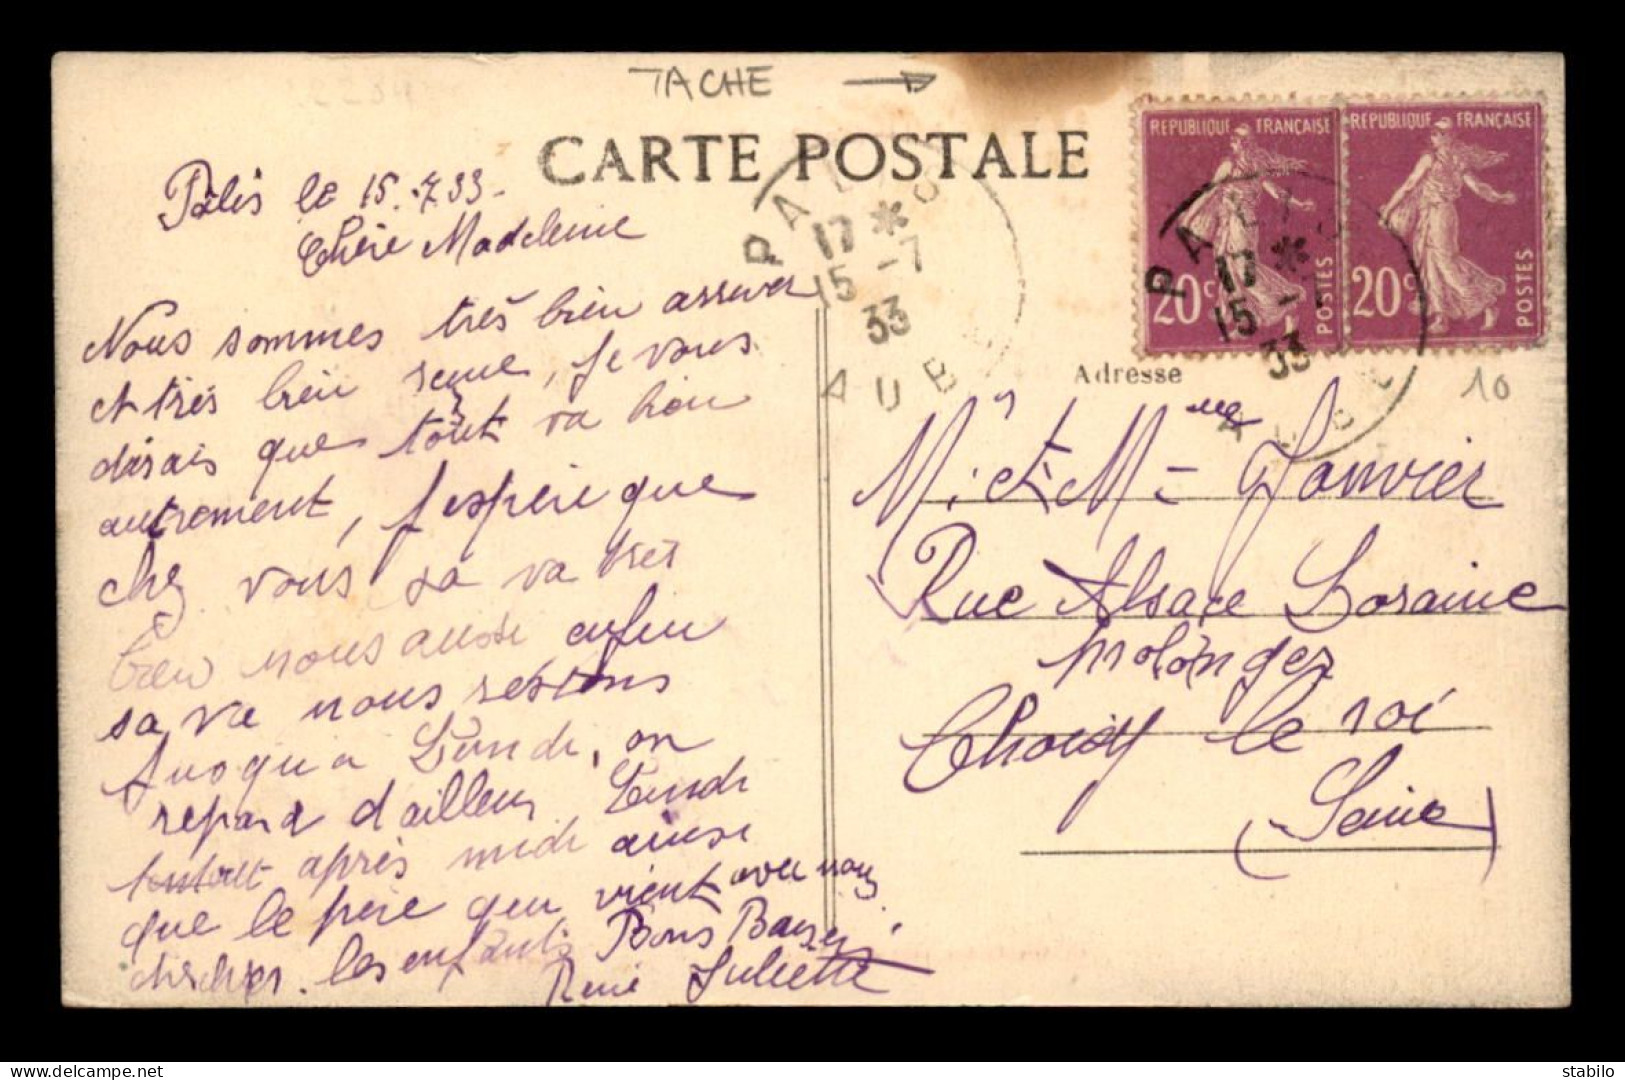 TACHE
CARTE POSTALE
Pâlis le 15.7.33.
Chère Madeleine
Nous sommes très bien arriver
et très bien reçue, je vous
dirais que tout va bien
autrement, j'espère que
chez vous sa va très
bien nous aussi enfin
sa va nous restons
jusqu'a Lundi, on
repard d'ailleur Lundi
tantot après midi ainsi
que le père qui vient avec nous
chercher les enfants Bons Baisers
René Juliette
REPUBLIQUE FRANÇAISE
20c POSTES
REPUBLIQUE FRANÇAISE
20c POSTES
PALIS
17 *
15 -7
33
AUBE
PALIS
17 *
15 -7
33
AUBE
Adresse
10
Mr et Mme Janvier
Rue Alsace Loraine
prolonger
Choisy le roi
(Seine)
delcampe.net
stabilo